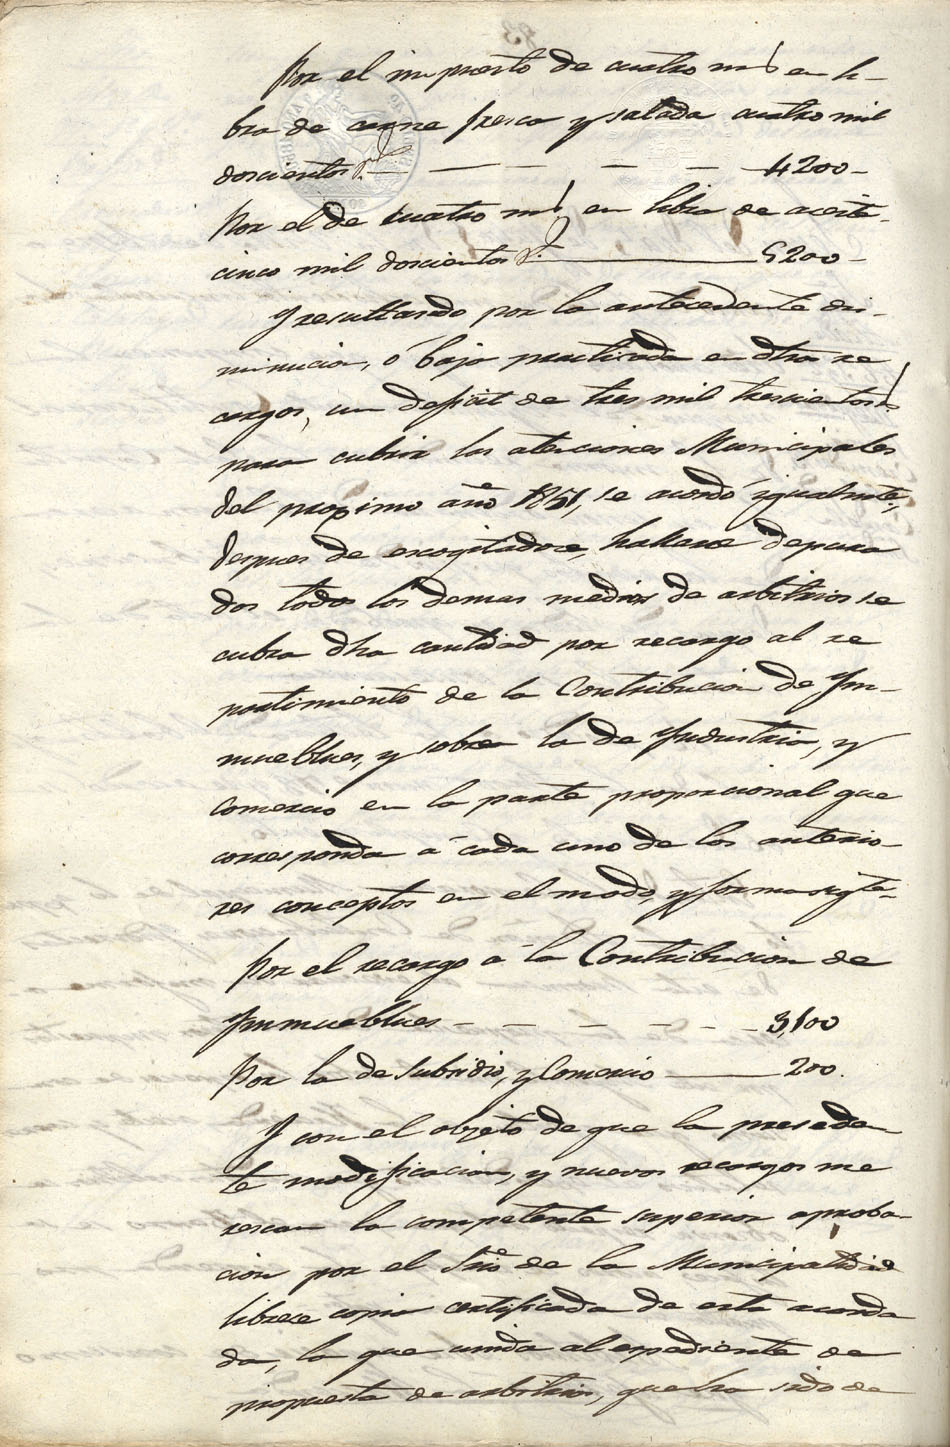 Por el impuesto de cuatro mrs en li-
bra de carne fresca y salada cuatro mil
doscientos rs. — — — — — 4200-
Por el de cuatro mrs en libra de aceite
cinco mil doscientos rs. — 5200-
Y resultando por la antecedente di-
minucion, ó baja practicada en dhos re
cargos, un deficit de tres mil trescientos rs
para cubrir las atenciones Municipales
del proximo año 1851, se acordó ygualmte,
despues de escogitadore, hallarse depura
dos todos los demas medios de arbitrios se
cubra dha cantidad por recargo al re
partimiento de la Contribucion de Ym-
muebles, y sobre la de Yndustria, y
Comercio en la parte proporcional que
corresponda á cada uno de los anterio-
res conceptos en el modo, y forma sigte-
Por el recargo á la Contribucion de
Ynmuebles - - - - - - 3,100
Por la de subsidio, y Comercio — 200.
Y con el objeto de que la preseden
te modificacion, y nuevos recargos me
rescan la competente superior aproba-
cion por el Srio de la Municipalidad
librese copia certificada de esta acorda
da, la que unida al expediente de
propuesta de arbitrios, que ha sido de